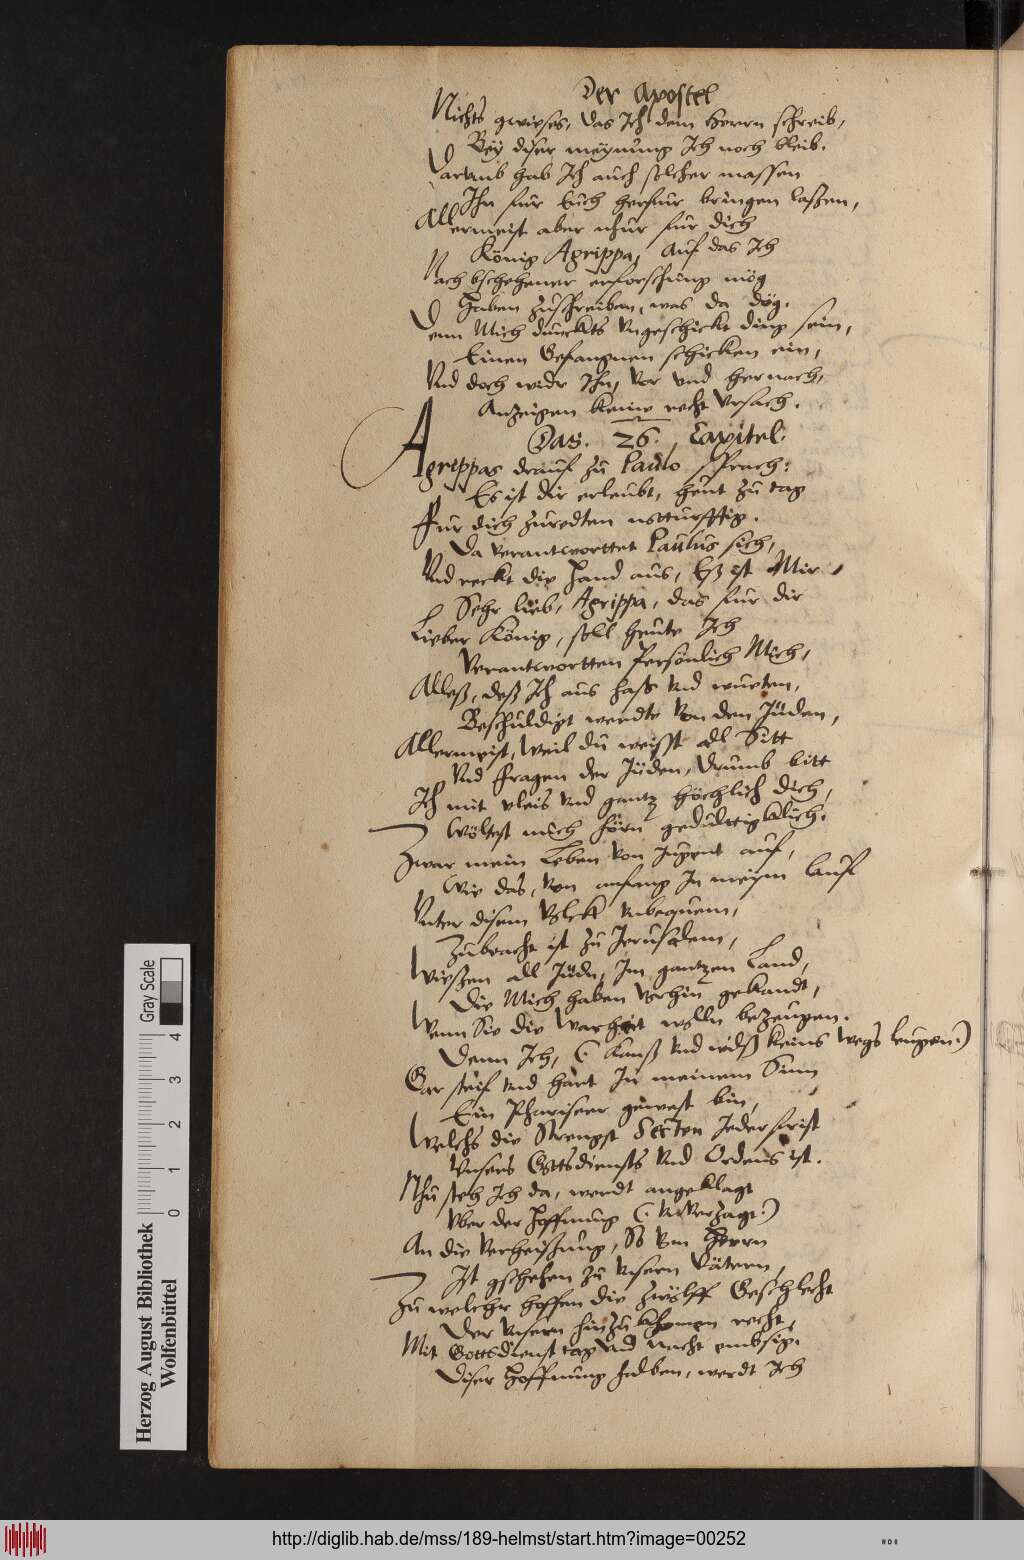 Der Apostel
Nichts gwieses, das Ich dem Herrn schreib,
Bey diser meynung Ich noch bleib.
Darumb hab Ich auch solcher massen
Ihn fur Euch herfur bringen laßen,
Allermeist aber nhur fur dich
König Agrippa, Auf das Ich
Nach bschehener erforschung mög
Haben zuschreiben, was da dög.
Denn Mich dunckts ungeschickt ding sein,
Einen Gefangnen schicken ein,
Vnd doch widr Ihn, vor vnd hernach,
Anzeigen keine recht Vrsach.
Das. 26. Capitel.
Agrippas drauf zu Paulo sprach:
Es ist dir erleubt, heut zu tag
Fur dich zuredten notturfftig.
Da verantworttet Paulus sich,
Vnd reckt die Hand aus, Eß ist Mir
Sehr lieb, Agrippa, das fur dir
Lieber König, soll heute Ich
Verantwortten Persönlich Mich,
Alleß, deß Ich aus haß vnd wueten,
Beschuldigt werdte von den Jüden,
Allermeist, Weil du weisst all Sitt
Vnd Fragen der Jüden, Drumb bitt
Ich mit vleis vnd gantz höchlich dich,
Wöltest mich hörn gedultigklich.
Zwar mein Leben von Jugent auf,
Wie das, von anfang In meym lauf
Vnter disem Volck vnbequem,
Zubracht ist zu Jerusalem,
Wießen all Jüdn, Im gantzen Land,
Die Mich haben Vorhin gekandt,
Wenn Sie die Warheit wolln bezeugen.
Denn Ich, (: kanß vnd wilß keins wegs leugen:)
Gar steif vnd hart In meinem Sinn
Ein Phariseer gewest bin,
Welchs die Strengst Secten Jeder frist
Vnsers Gottsdiensts vnd Ordens ist.
Nhu steh Ich da, werdt angeklagt
Vber der Hoffnung (: vnVerzagt:)
An die Verheißung, So vom Herrn
Ist gschehen zu vnsern Vätern,
Zu welcher hoffen die zwölff Geschlecht
Der vnsern hinzukhomen recht,
Mit Gottsdienst tag vnd nacht embsig.
Diser Hoffnung halben, werdt Ich
Herzog August Bibliothek
Wolfenbüttel
Gray Scale
0 1 2 3 4
http://diglib.hab.de/mss/189-helmst/start.htm?image=00252